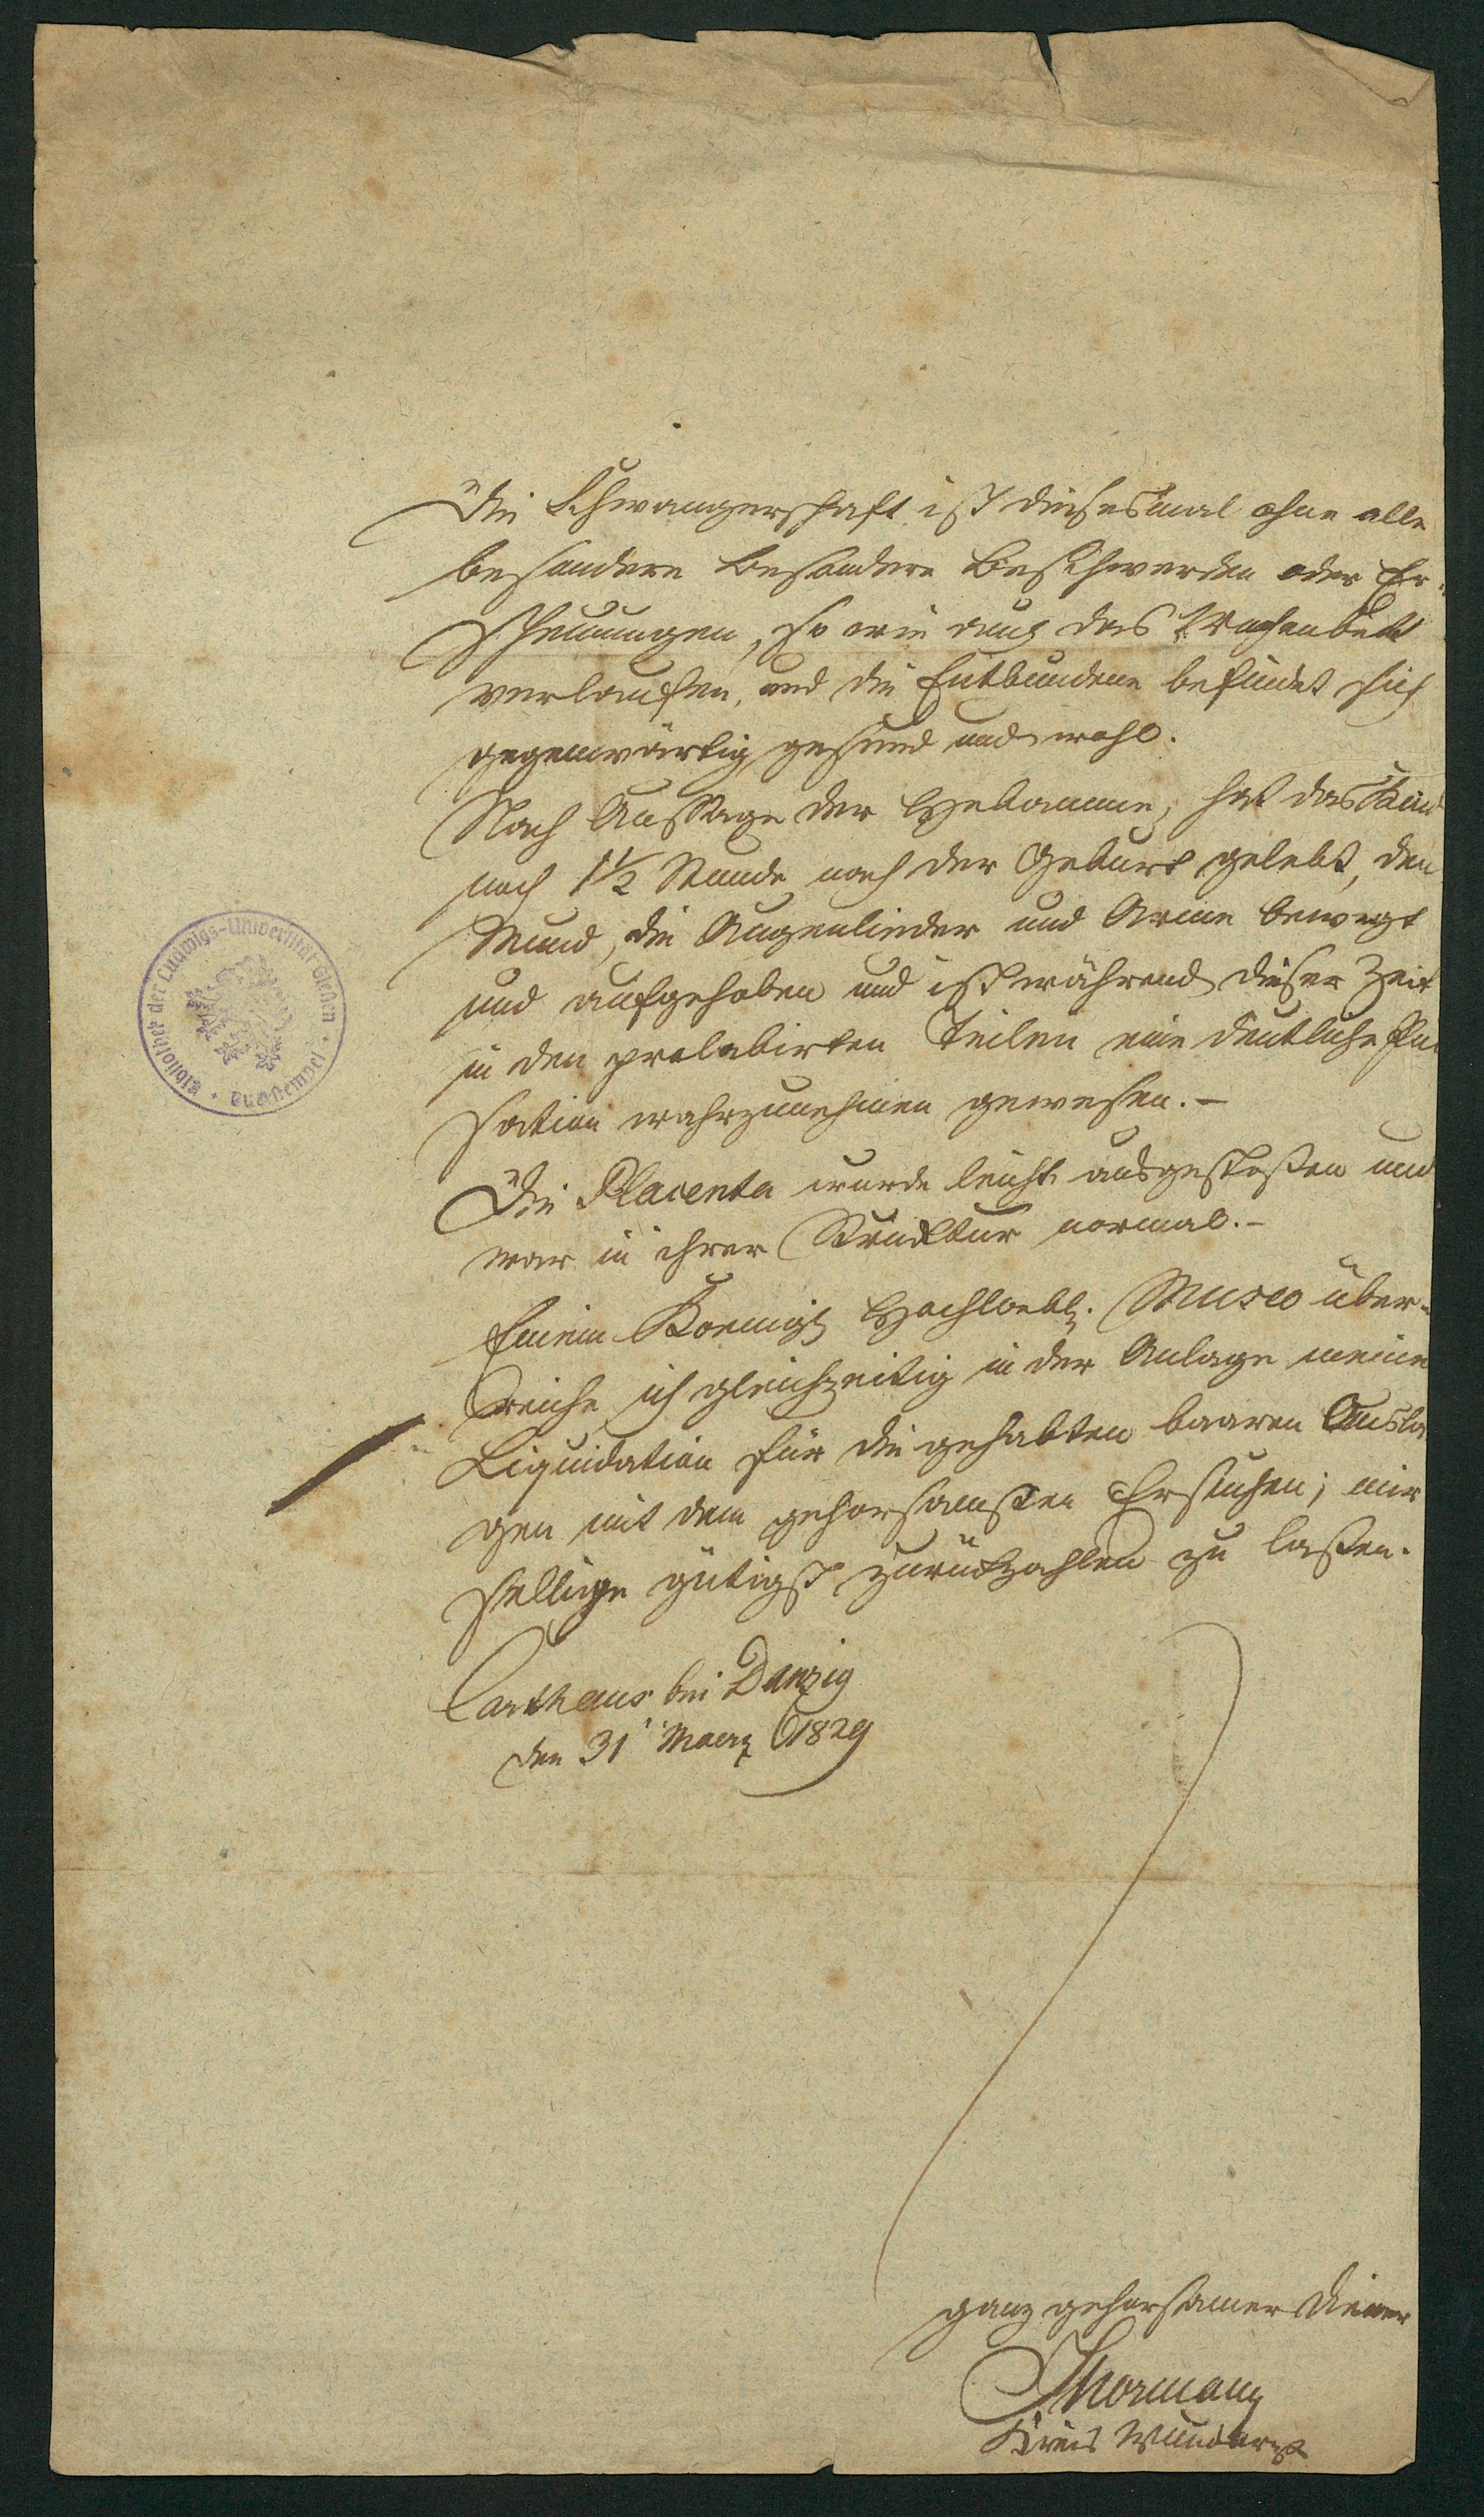 Die Schwangerschaft ist diesesmal ohne alle
besondere besondere Beschwerden oder Er-
scheinungen, so wie auch das Wochenbett
verlaufen, und die Entbundene befindet sich
gegenwärtig gesund und wohl.
Nach Aussage der Hebamme, hat das Kind
noch 1½ Stunde nach der Geburt gelebt, den
Mund, die Augenlieder und Arme bewegt
und aufgehoben und ist während dieser Zeit
in den prolabirten Teilen eine deutliche Pul
sation wahrzunehmen gewesen.-
Die Placenta wurde leicht ausgestoßen und
war in ihrer Strucktur normal.-
Einem Koenigl Hochloebl. Museo über-
reiche ich gleichzeitig in der Anlage meine
Liquidation für die gehabten baaren Ausla
gen mit dem gehorsamsten Ersuchen; mir
selbige gütigst zurückzahlen zu laßen.
Carthaus bei Danzig
den 31 Maerz 1829
ganz gehorsamer Diener
Thormann
Kreis Wundarzt
Bibliothek der Ludwigs-Universität Gießen